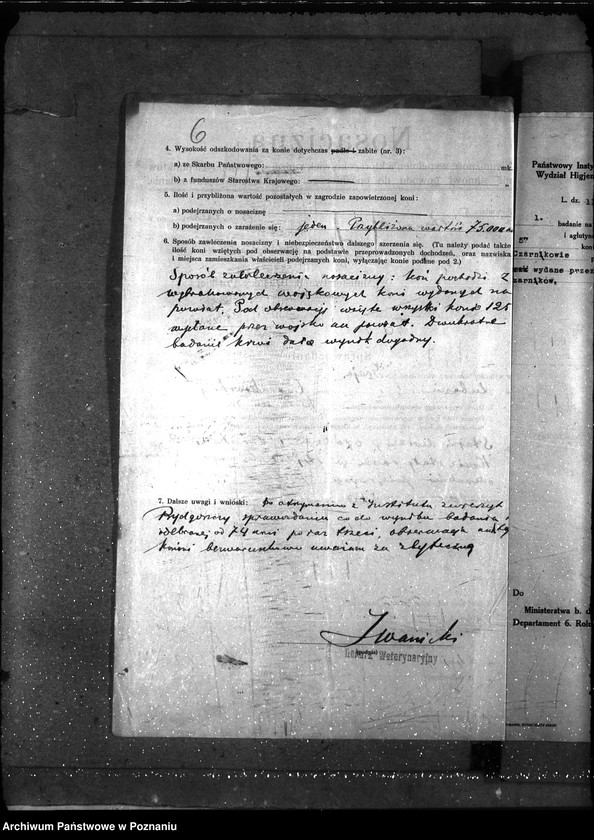 6
4. Wysokość odszkodowania za konie dotychczas padłe i zabite (nr. 3):
a) ze Skarbu Państwowego: mk.
b) z funduszów Starostwa Krajowego: „
5. Ilość i przybliżona wartość pozostałych w zagrodzie zapowietrzonej koni:
a) podejrzanych o nosaciznę
b) podejrzanych o zarażenie się: jeden Przybliżona wartość 75.000 m
6. Sposób zawleczenia nosacizny i niebezpieczeństwo dalszego szerzenia się. (Tu należy podać także
ilość koni wziętych pod obserwację na podstawie przeprowadzonych dochodzeń, oraz nazwiska
i miejsca zamieszkania właścicieli podejrzanych koni, wyłączając konie podane pod 2.)
Sposób zawleczenia nosacizny: koń pochodzi z
wybrakowanych wojskowych koni wydanych na
powiat. Pod obserwację wzięte wszystkie konie 125
wydane przez wojsko na powiat. Dwukrotne
badanie krwi dało wynik
7. Dalsze uwagi i wnioski: Po otrzymaniu z Instytutu
Bydgoszczy sprawozdania co do wyniku badania
odebranej od 74 koni po raz trzeci, obserwację
bezwarunkowo uważam za zbyteczną
Iwanicki
Lekarz Weterynaryjny
Państwowy Insty
Wydział Higjen
L. dz.
1.
badanie na
i aglutyn
5" kon
Czarnikowie p
wydane przez
zarników.
Do
Ministerstwa b. d
Departament 6. Roln
Archiwum Państwowe w Poznaniu